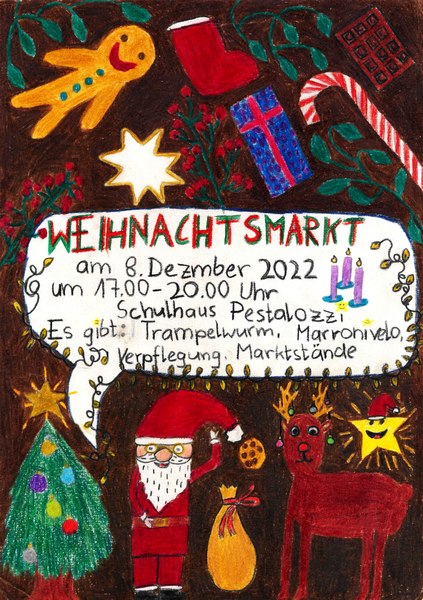 WEIHNACHTSMARKT
am 8. Dezmber 2022
um 17.00-20.00 Uhr
Schulhaus Pestalozzi
Es gibt: Trampelwurm, Marronivelo,
Verpflegung. Marktstände